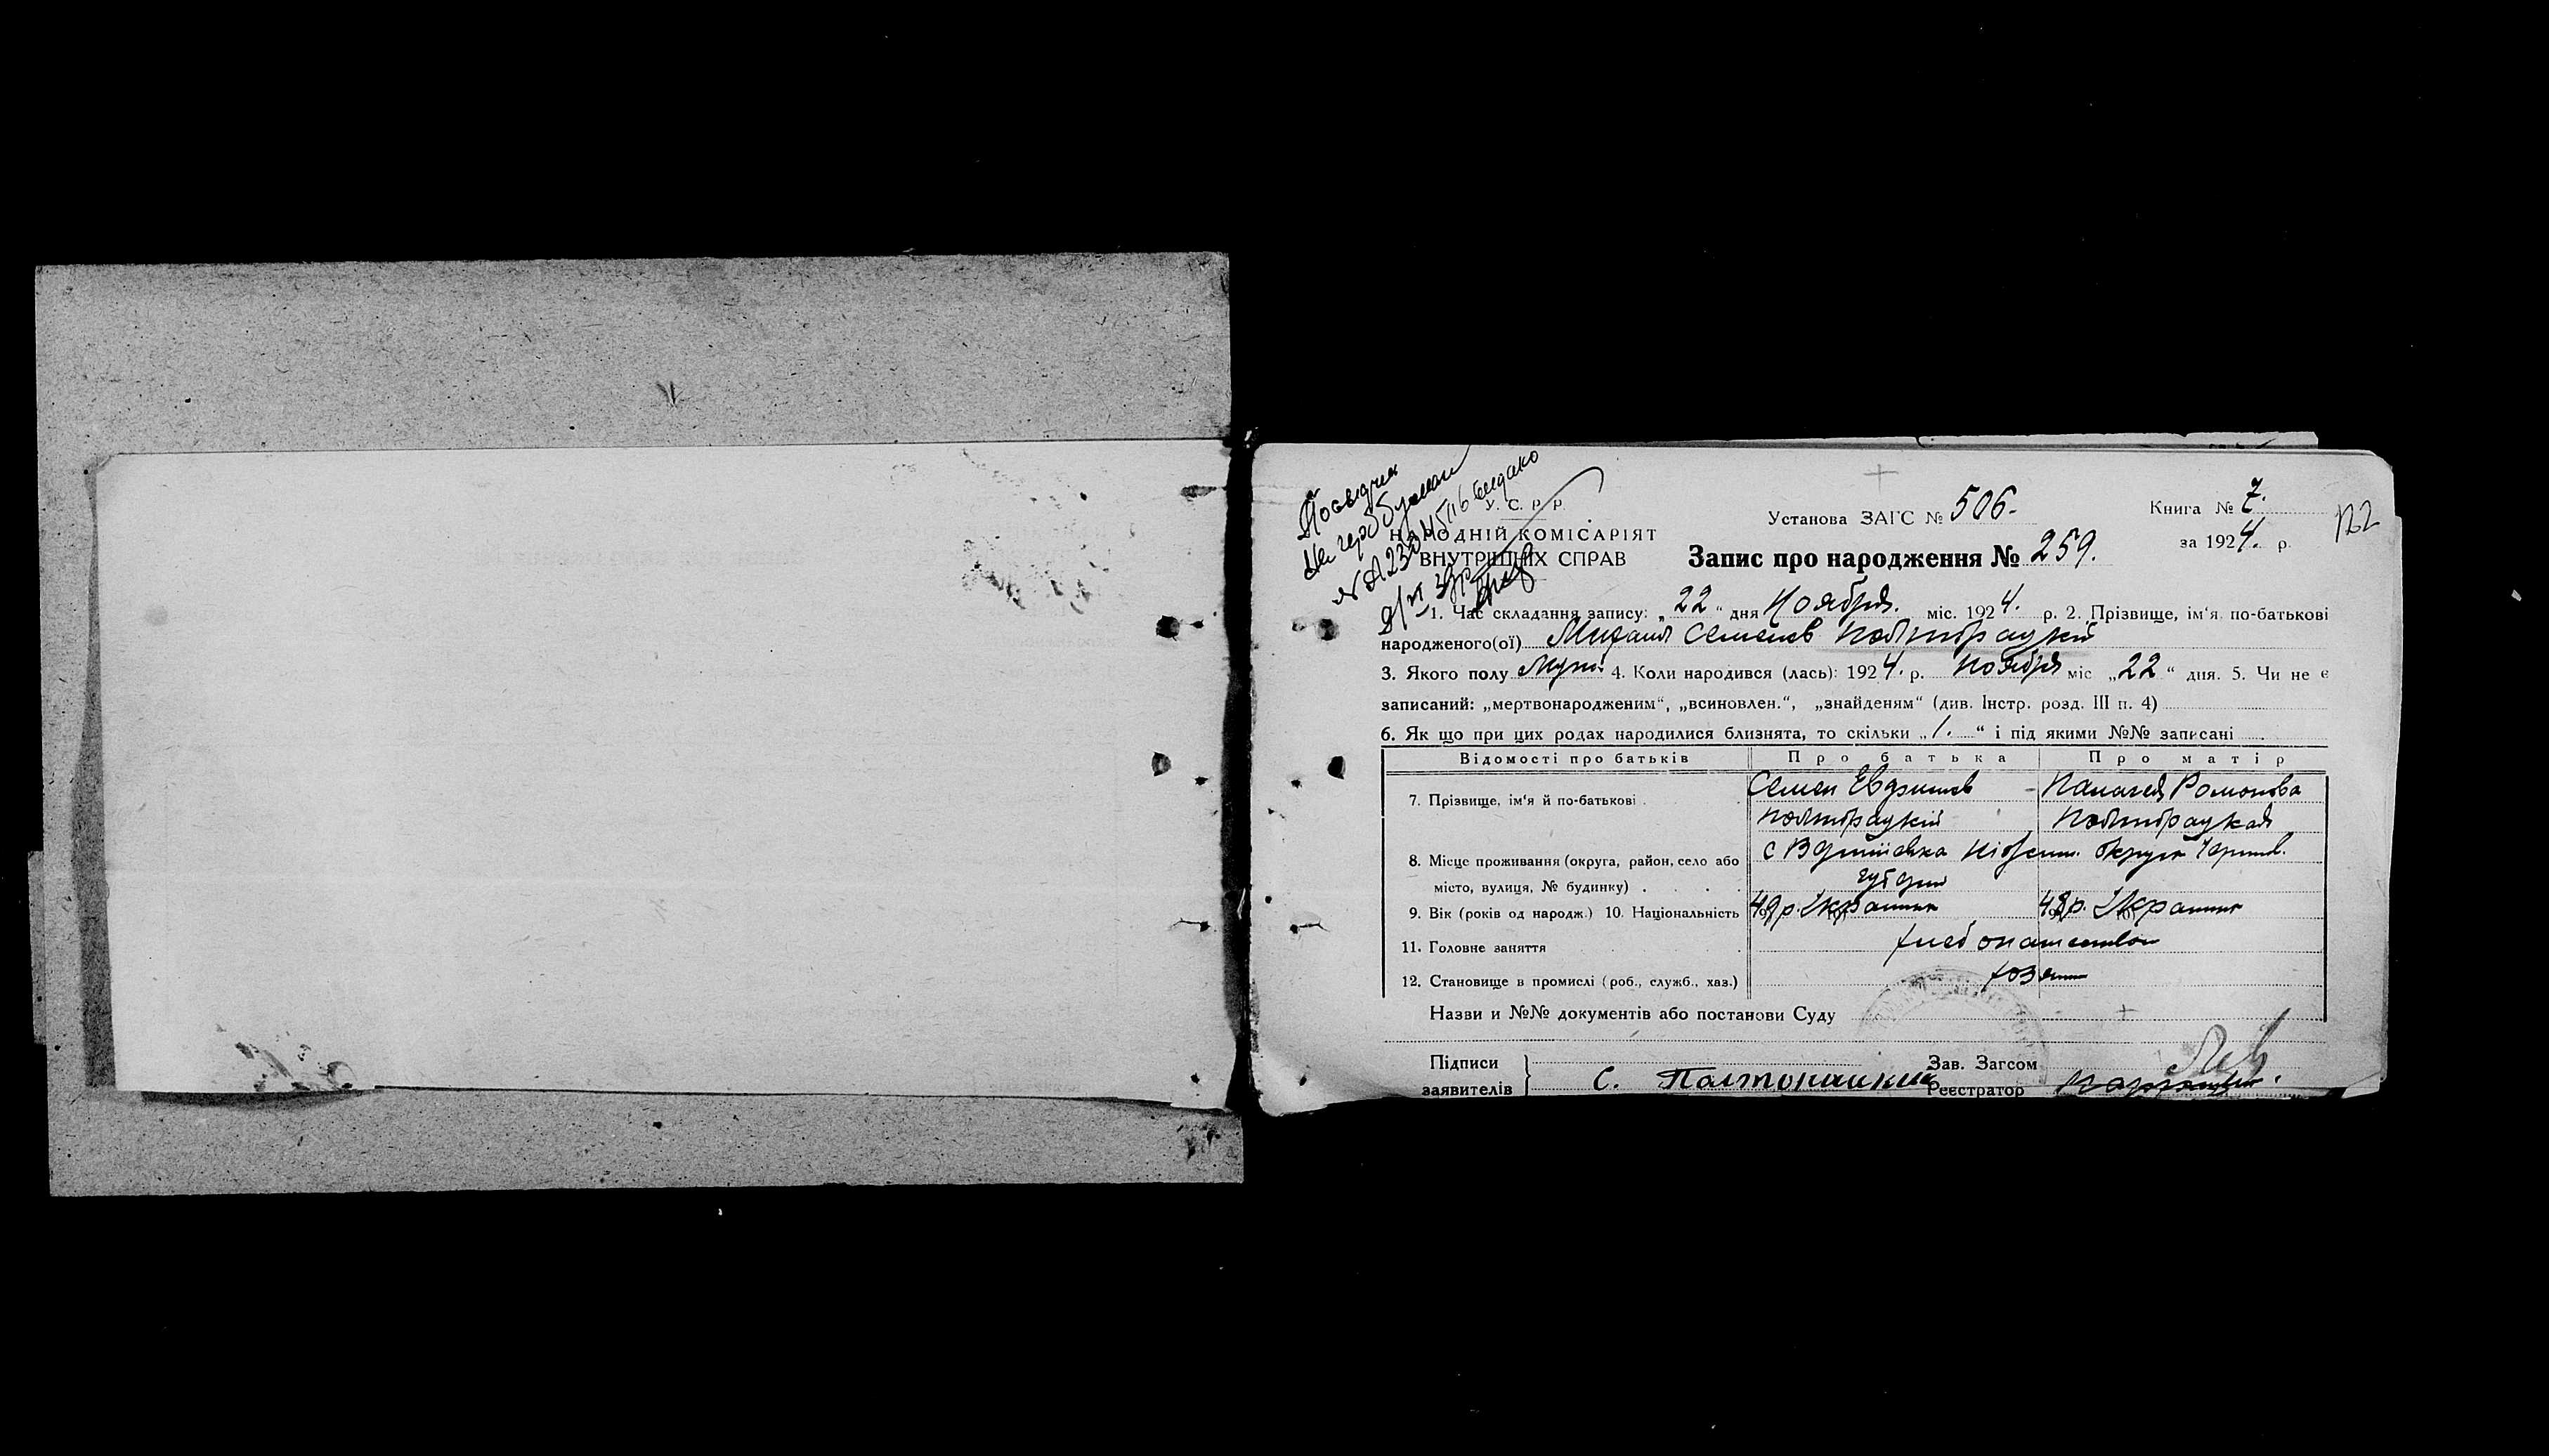 Посвідчен
на герб бумаги
№ А 233 видано
У. С. Р. Р.
НАРОДНІЙ КОМІСАРІЯТ
ВНУТРІШНІХ СПРАВ
Установа ЗАГС № 506.
Книга № 7.
за 1924. р.
Запис про народження № 259.
1. Час складання запису: „22“ дня Ноября. міс. 1924. р. 2. Прізвище, ім‘я по-батькові
народженого(ої) Михаил Семенов Полторацкий
3. Якого полу Мужс. 4. Коли народився (лась): 1924. р. Ноября міс „22“ дня. 5. Чи не є
записаний: „мертвонародженим“, „всиновлен.“, „знайденям“ (див. Інстр. розд. III п. 4)
6. Як що при цих родах народилися близнята, то скільки „1.“ і під якими №№ записані
Відомості про батьків Про батька Про матір
7. Прізвище, ім‘я й по-батькові Семен Пелагея Романова
Полторацкий Полторацкая
8. Місце проживання (округа, район, село або с Ніжин. округи Черниг.
місто, вулиця, № будинку) губернии
9. Вік (років од народж.) 10. Національність 49 р. Украинец 48 р. Украинка
11. Головне заняття хлебопашество
12. Становище в промислі (роб., служб., хаз.) хозяин
Назви и №№ документів або постанови Суду
Підписи Зав. Загсом
заявителів С. Полторацкий Реєстратор